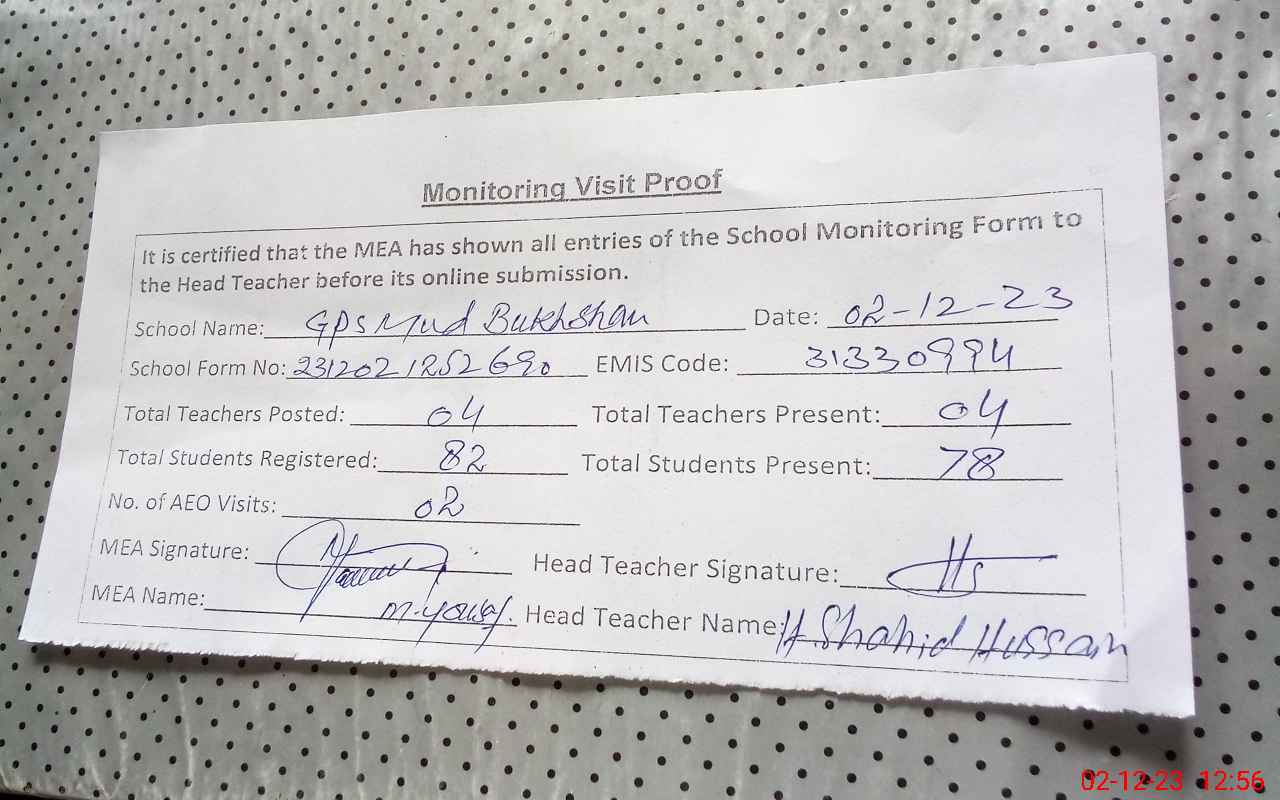 Monitoring Visit Proof
It is certified that the MEA has shown all entries of the School Monitoring Form to
the Head Teacher before its online submission.
School Name: GPS Mud Bukhshan Date: 02-12-23
School Form No: 2312021252690 EMIS Code: 31330994
Total Teachers Posted: 04 Total Teachers Present: 04
Total Students Registered: 82 Total Students Present: 78
No. of AEO Visits: 02
MEA Signature: Head Teacher Signature: Hs
MEA Name: M. Yousaf. Head Teacher Name: H. Shahid Hussain
02-12-23 12:56